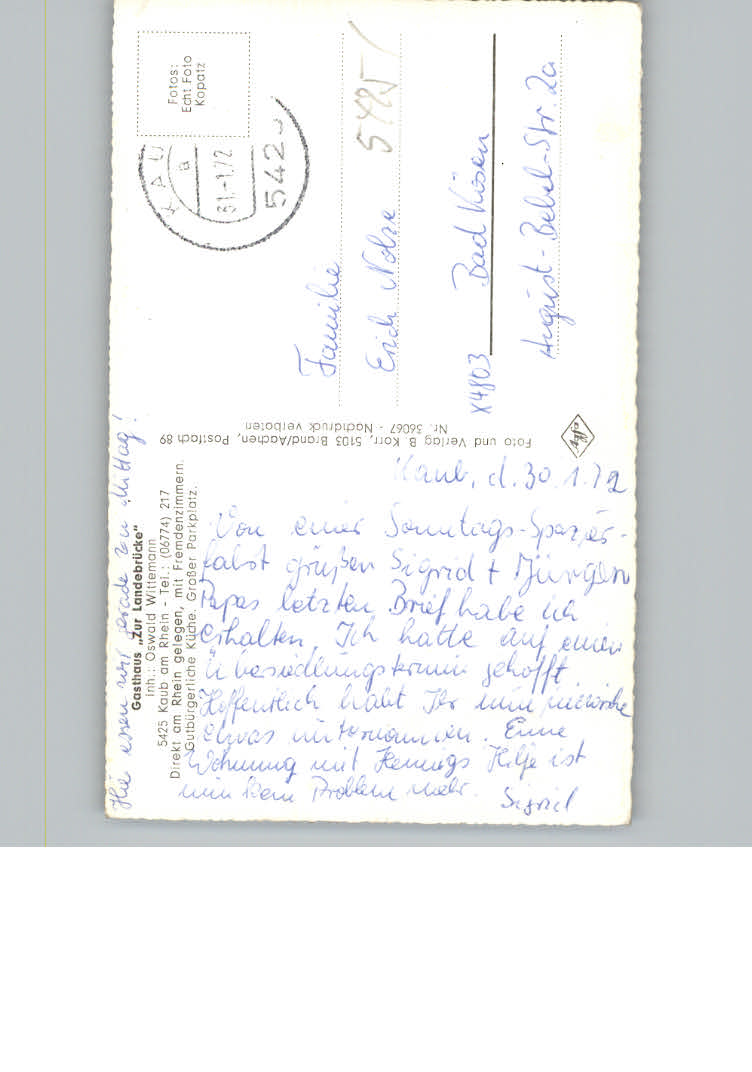 Hier essen wir gerade zu Mittag!
Gasthaus „Zur Landebrücke"
Inh.: Oswald Wittemann
5425 Kaub am Rhein - Tel.: (06774) 217
Direkt am Rhein gelegen, mit Fremdenzimmern.
Gutbürgerliche Küche. Großer Parkplatz.
Kaub, d. 30.1.72
Von einer Sonntags-Spazier-
fahrt grüßen Sigrid + Jürgen
Papas letzten Brief habe ich
erhalten. Ich hatte auf einen
Übersiedlungstermin gehofft.
Hoffentlich habt Ihr nun
etwas unternommen. Eine
Wohnung mit Hennings Hilfe ist
nun kein Problem mehr.
Sigrid
Foto und Verlag B. Korr, 5103 Brand/Aachen, Postfach 89
Nr. 56067 - Nachdruck verboten
Agfa
Fotos:
Echt Foto
Kopatz
KAU
a
31.-1.72
542
5425
Familie
Erich Nolze
X4803 Bad Kösen
August-Bebel-Str. 2a